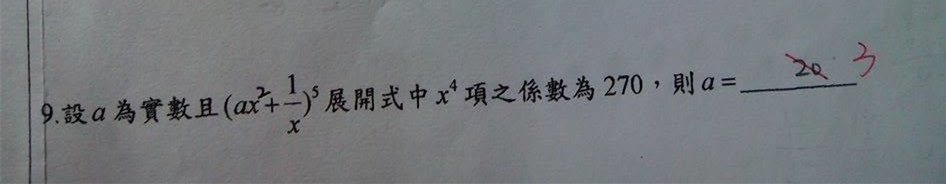 9.設a為實數且(ax²+1/x)⁵展開式中x⁴項之係數為270,則a=20 3